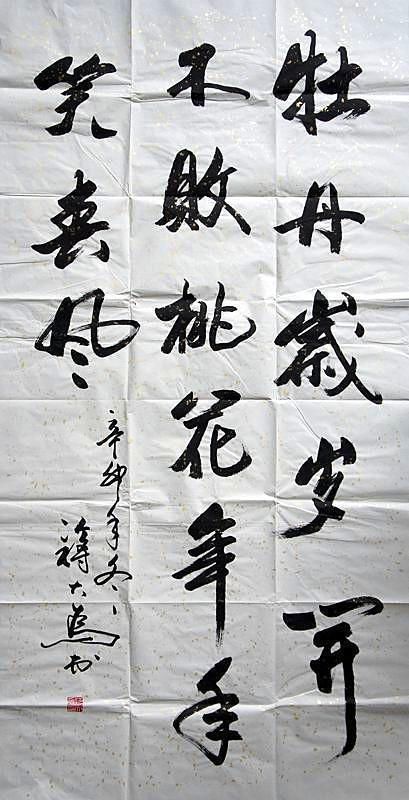 牡丹歲岁开
不敗桃花年年
笑春风
辛卯年冬
大为书